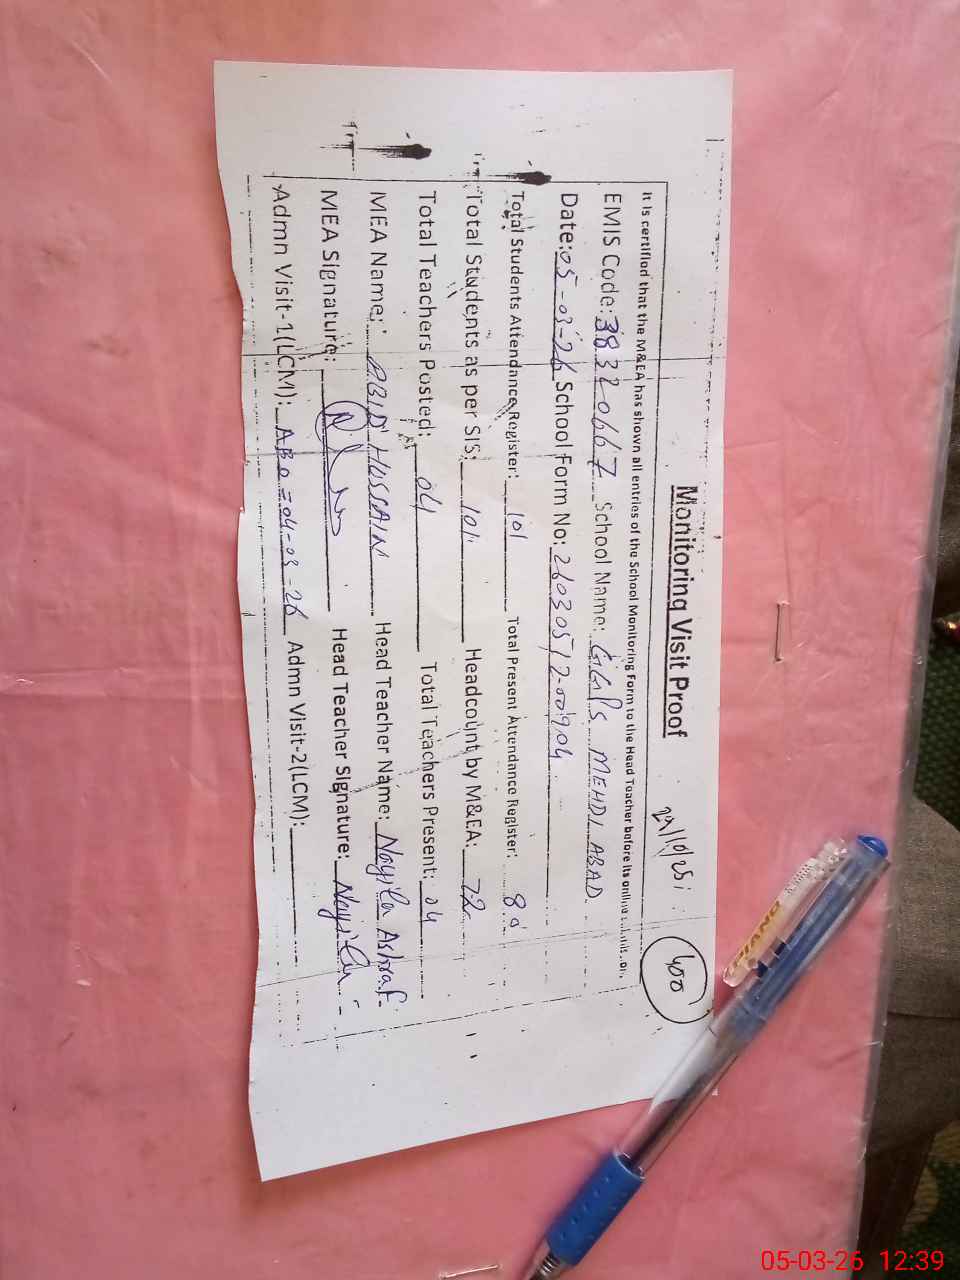 Monitoring Visit Proof
400
It is certified that the M&EA has shown all entries of the School Monitoring Form to the Head Teacher before its online
EMIS Code: 38320667 School Name: GGPS MEHDI ABAD
Date: 05-03-26 School Form No: 26030512-00904
Total Students Attendance Register: 101 Total Present Attendance Register: 80
Total Students as per SIS: 101 Headcount by M&EA: 72
Total Teachers Posted: 04 Total Teachers Present: 04
MEA Name: ABID HUSSAIN Head Teacher Name: Nayila Ashraf
MEA Signature: Head Teacher Signature: Nayila
Admn Visit-1(LCM): 04-03-26 Admn Visit-2(LCM):
PIANO
05-03-26 12:39